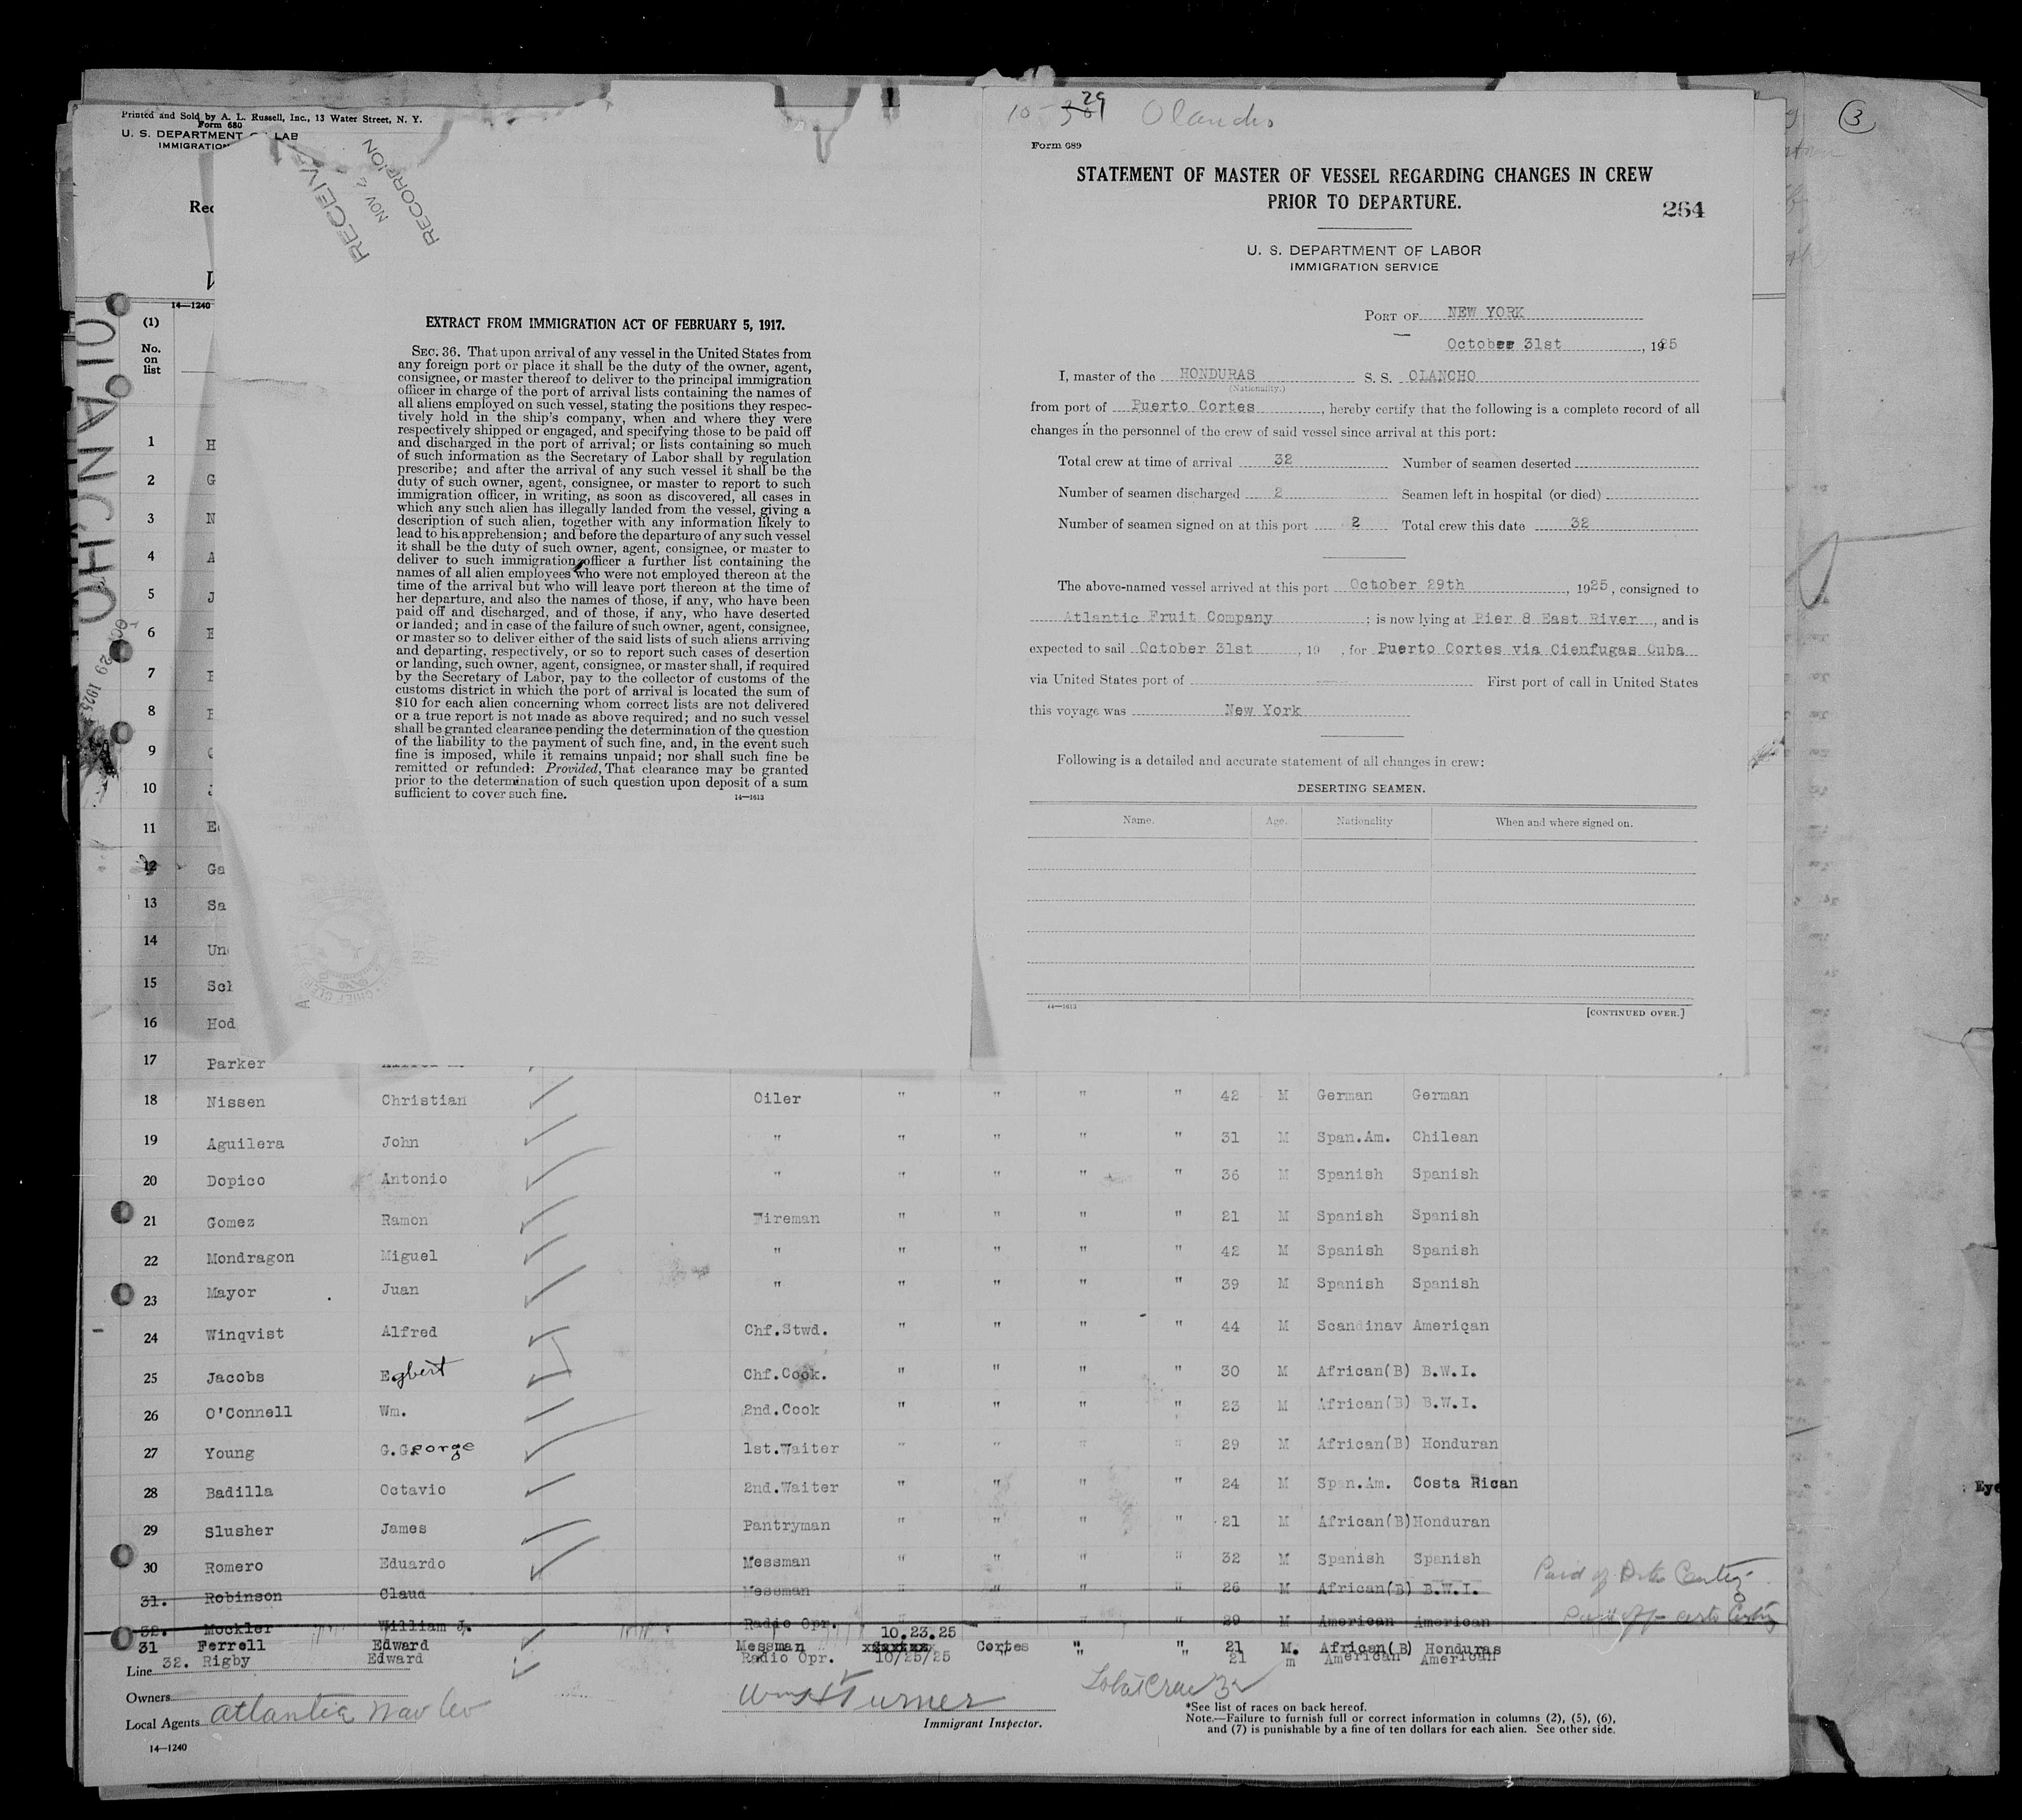 Printed and Sold by A. L. Russell, Inc., 13 Water Street, N. Y.
Form 680
U. S. DEPARTMENT LAB
IMMIGRATION
Rec
14—1240
(1)
No.
on
list
OLANCHO
OCT 29 1925
RECEIVE
NOV 4
RECOR ION
EXTRACT FROM IMMIGRATION ACT OF FEBRUARY 5, 1917.
SEC. 36. That upon arrival of any vessel in the United States from
any foreign port or place it shall be the duty of the owner, agent,
consignee, or master thereof to deliver to the principal immigration
officer in charge of the port of arrival lists containing the names of
all aliens employed on such vessel, stating the positions they respec-
tively hold in the ship's company, when and where they were
respectively shipped or engaged, and specifying those to be paid off
and discharged in the port of arrival; or lists containing so much
of such information as the Secretary of Labor shall by regulation
prescribe; and after the arrival of any such vessel it shall be the
duty of such owner, agent, consignee, or master to report to such
immigration officer, in writing, as soon as discovered, all cases in
which any such alien has illegally landed from the vessel, giving a
description of such alien, together with any information likely to
lead to his apprehension; and before the departure of any such vessel
it shall be the duty of such owner, agent, consignee, or master to
deliver to such immigration officer a further list containing the
names of all alien employees who were not employed thereon at the
time of the arrival but who will leave port thereon at the time of
her departure, and also the names of those, if any, who have been
paid off and discharged, and of those, if any, who have deserted
or landed; and in case of the failure of such owner, agent, consignee,
or master so to deliver either of the said lists of such aliens arriving
and departing, respectively, or so to report such cases of desertion
or landing, such owner, agent, consignee, or master shall, if required
by the Secretary of Labor, pay to the collector of customs of the
customs district in which the port of arrival is located the sum of
$10 for each alien concerning whom correct lists are not delivered
or a true report is not made as above required; and no such vessel
shall be granted clearance pending the determination of the question
of the liability to the payment of such fine, and, in the event such
fine is imposed, while it remains unpaid; nor shall such fine be
remitted or refunded: Provided, That clearance may be granted
prior to the determination of such question upon deposit of a sum
sufficient to cover such fine.
14—1613
10 - 29 Olancho
Form 689
STATEMENT OF MASTER OF VESSEL REGARDING CHANGES IN CREW
PRIOR TO DEPARTURE.
264
U. S. DEPARTMENT OF LABOR
IMMIGRATION SERVICE
PORT OF NEW YORK
October 31st, 1925
I, master of the HONDURAS S. S. OLANCHO
(Nationality.)
from port of Puerto Cortes, hereby certify that the following is a complete record of all
changes in the personnel of the crew of said vessel since arrival at this port:
Total crew at time of arrival 32 Number of seamen deserted
Number of seamen discharged 2 Seamen left in hospital (or died)
Number of seamen signed on at this port 2 Total crew this date 32
The above-named vessel arrived at this port October 29th, 1925, consigned to
Atlantic Fruit Company; is now lying at Pier 8 East River, and is
expected to sail October 31st, 19 , for Puerto Cortes via Cienfugas Cuba
via United States port of First port of call in United States
this voyage was New York
Following is a detailed and accurate statement of all changes in crew:
DESERTING SEAMEN.
Name. Age. Nationality When and where signed on.
14—1613
[CONTINUED OVER.]
3
1 H
2 G
3 N
4 A
5 J
6 E
7
8
9
10
11
12 Ga
13 Sa
14 Un
15 Sch
16 Hod
17 Parker
18 Nissen Christian Oiler " " " " 42 M German German
19 Aguilera John " " " " " 31 M Span.Am. Chilean
20 Dopico Antonio " " " " " 36 M Spanish Spanish
21 Gomez Ramon Fireman " " " " 21 M Spanish Spanish
22 Mondragon Miguel " " " " " 42 M Spanish Spanish
23 Mayor Juan " " " " " 39 M Spanish Spanish
24 Winqvist Alfred Chf.Stwd. " " " " 44 M Scandinav American
25 Jacobs Egbert Chf.Cook. " " " " 30 M African(B) B.W.I.
26 O'Connell Wm. 2nd.Cook " " " " 23 M African(B) B.W.I.
27 Young G.George 1st.Waiter " " " " 29 M African(B) Honduran
28 Badilla Octavio 2nd.Waiter " " " " 24 M Span.Am. Costa Rican
29 Slusher James Pantryman " " " " 21 M African(B) Honduran
30 Romero Eduardo Messman " " " " 32 M Spanish Spanish
31. Robinson Claud Messman " " " " 26 M African(B) B.W.I. Paid
32. Mockler William J. Radio Opr. " 29 M American American
31 Ferrell Edward Messman 10.23.25 Cortes " " 21 M. African(B) Honduras
Line 32. Rigby Edward Radio Opr. 10/25/25 " " " 21 m American American
Owners
Local Agents Atlantic Nav Co
Turner
Immigrant Inspector.
Total Crew 32
*See list of races on back hereof.
Note.—Failure to furnish full or correct information in columns (2), (5), (6),
and (7) is punishable by a fine of ten dollars for each alien. See other side.
14—1240
Eye